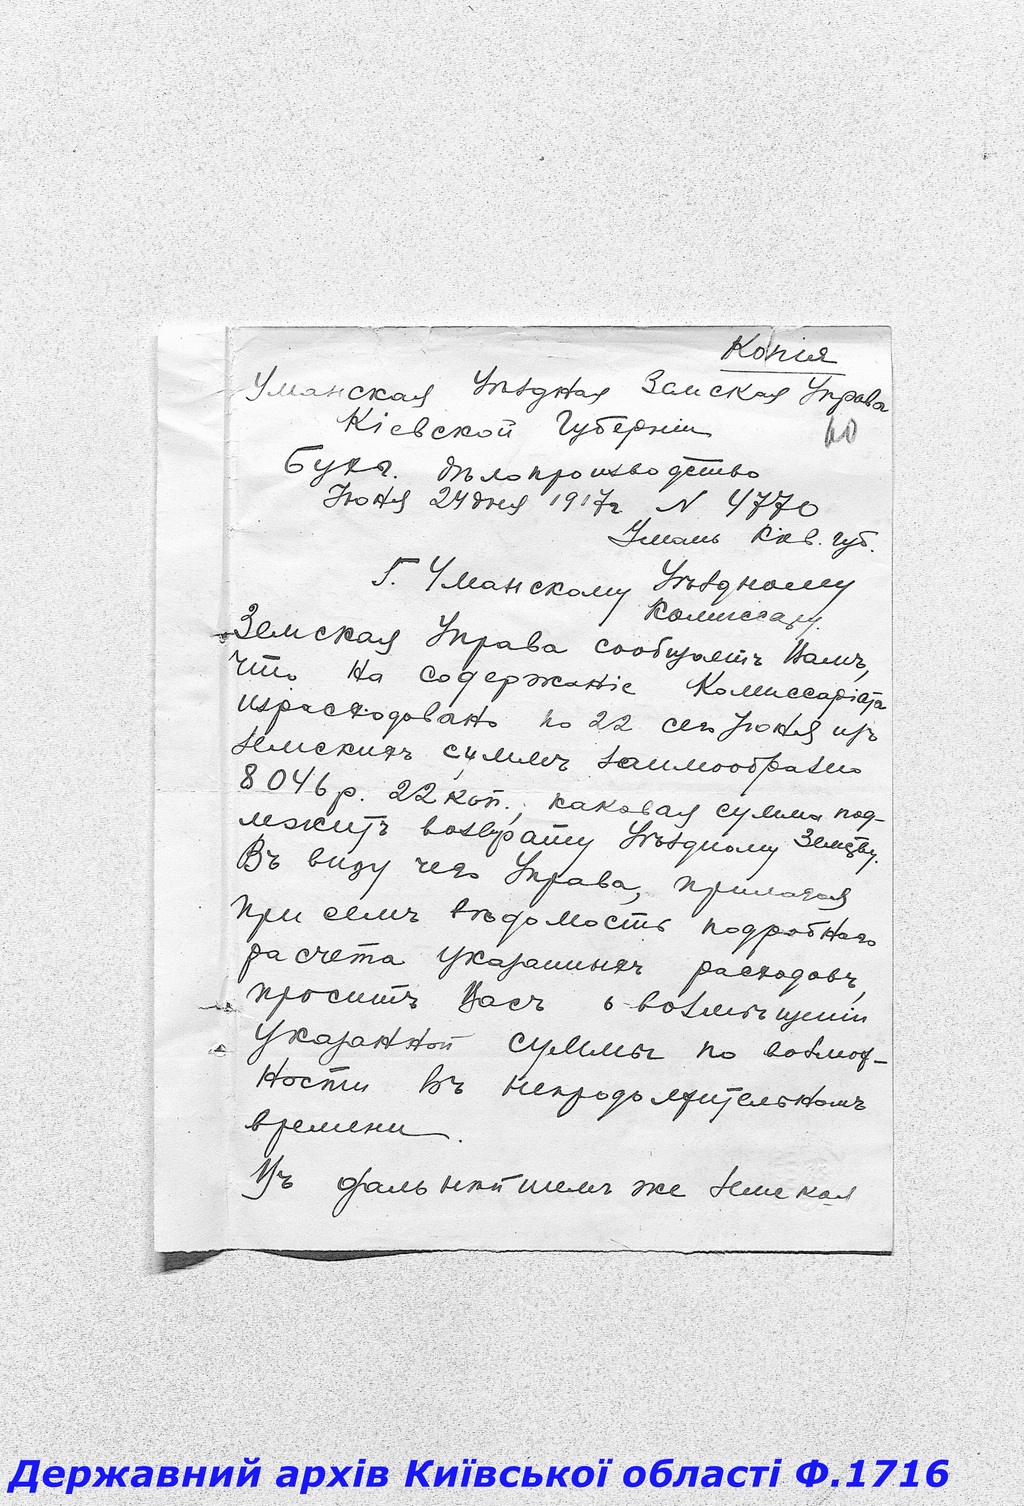 Копія
Уманская Уѣздная Земская Управа
Кіевской Губерніи
60
Бухг. дѣлопроизводство
Іюня 24 дня 1917 г N 4770
Умань Кіев. губ.
Г. Уманскому Уѣздному
Комиссару.
Земская Управа сообщаетъ Вамъ,
что на содержаніе Комиссаріата
израсходовано по 22 сего Іюня изъ
земскихъ суммъ заимообразно
8046 р. 22 коп., каковая сумма под-
лежитъ возврату Уѣздному Земству.
Въ виду чего Управа, прилагая
при семъ вѣдомость подробного
расчета указанныхъ расходовъ,
проситъ Васъ о возмѣщеніи
указанной суммы по возмож-
ности въ непродолжительномъ
времени.
Въ дальнѣйшемъ же земская
Державний архів Київської області Ф.1716